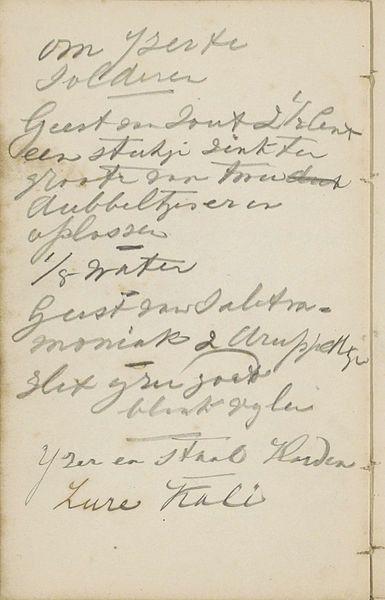 om Yzer te
Solderen
Geest van Zout 2 ½ Cent
een stukje zink ter
groote van twee
dubbeltjes er in
oplossen
⅛ water
Geest van Saletm=
moniak 2 druppeltje
Het yzer goed
blank vylen
Yzer en Staal Harden
Zure Kali